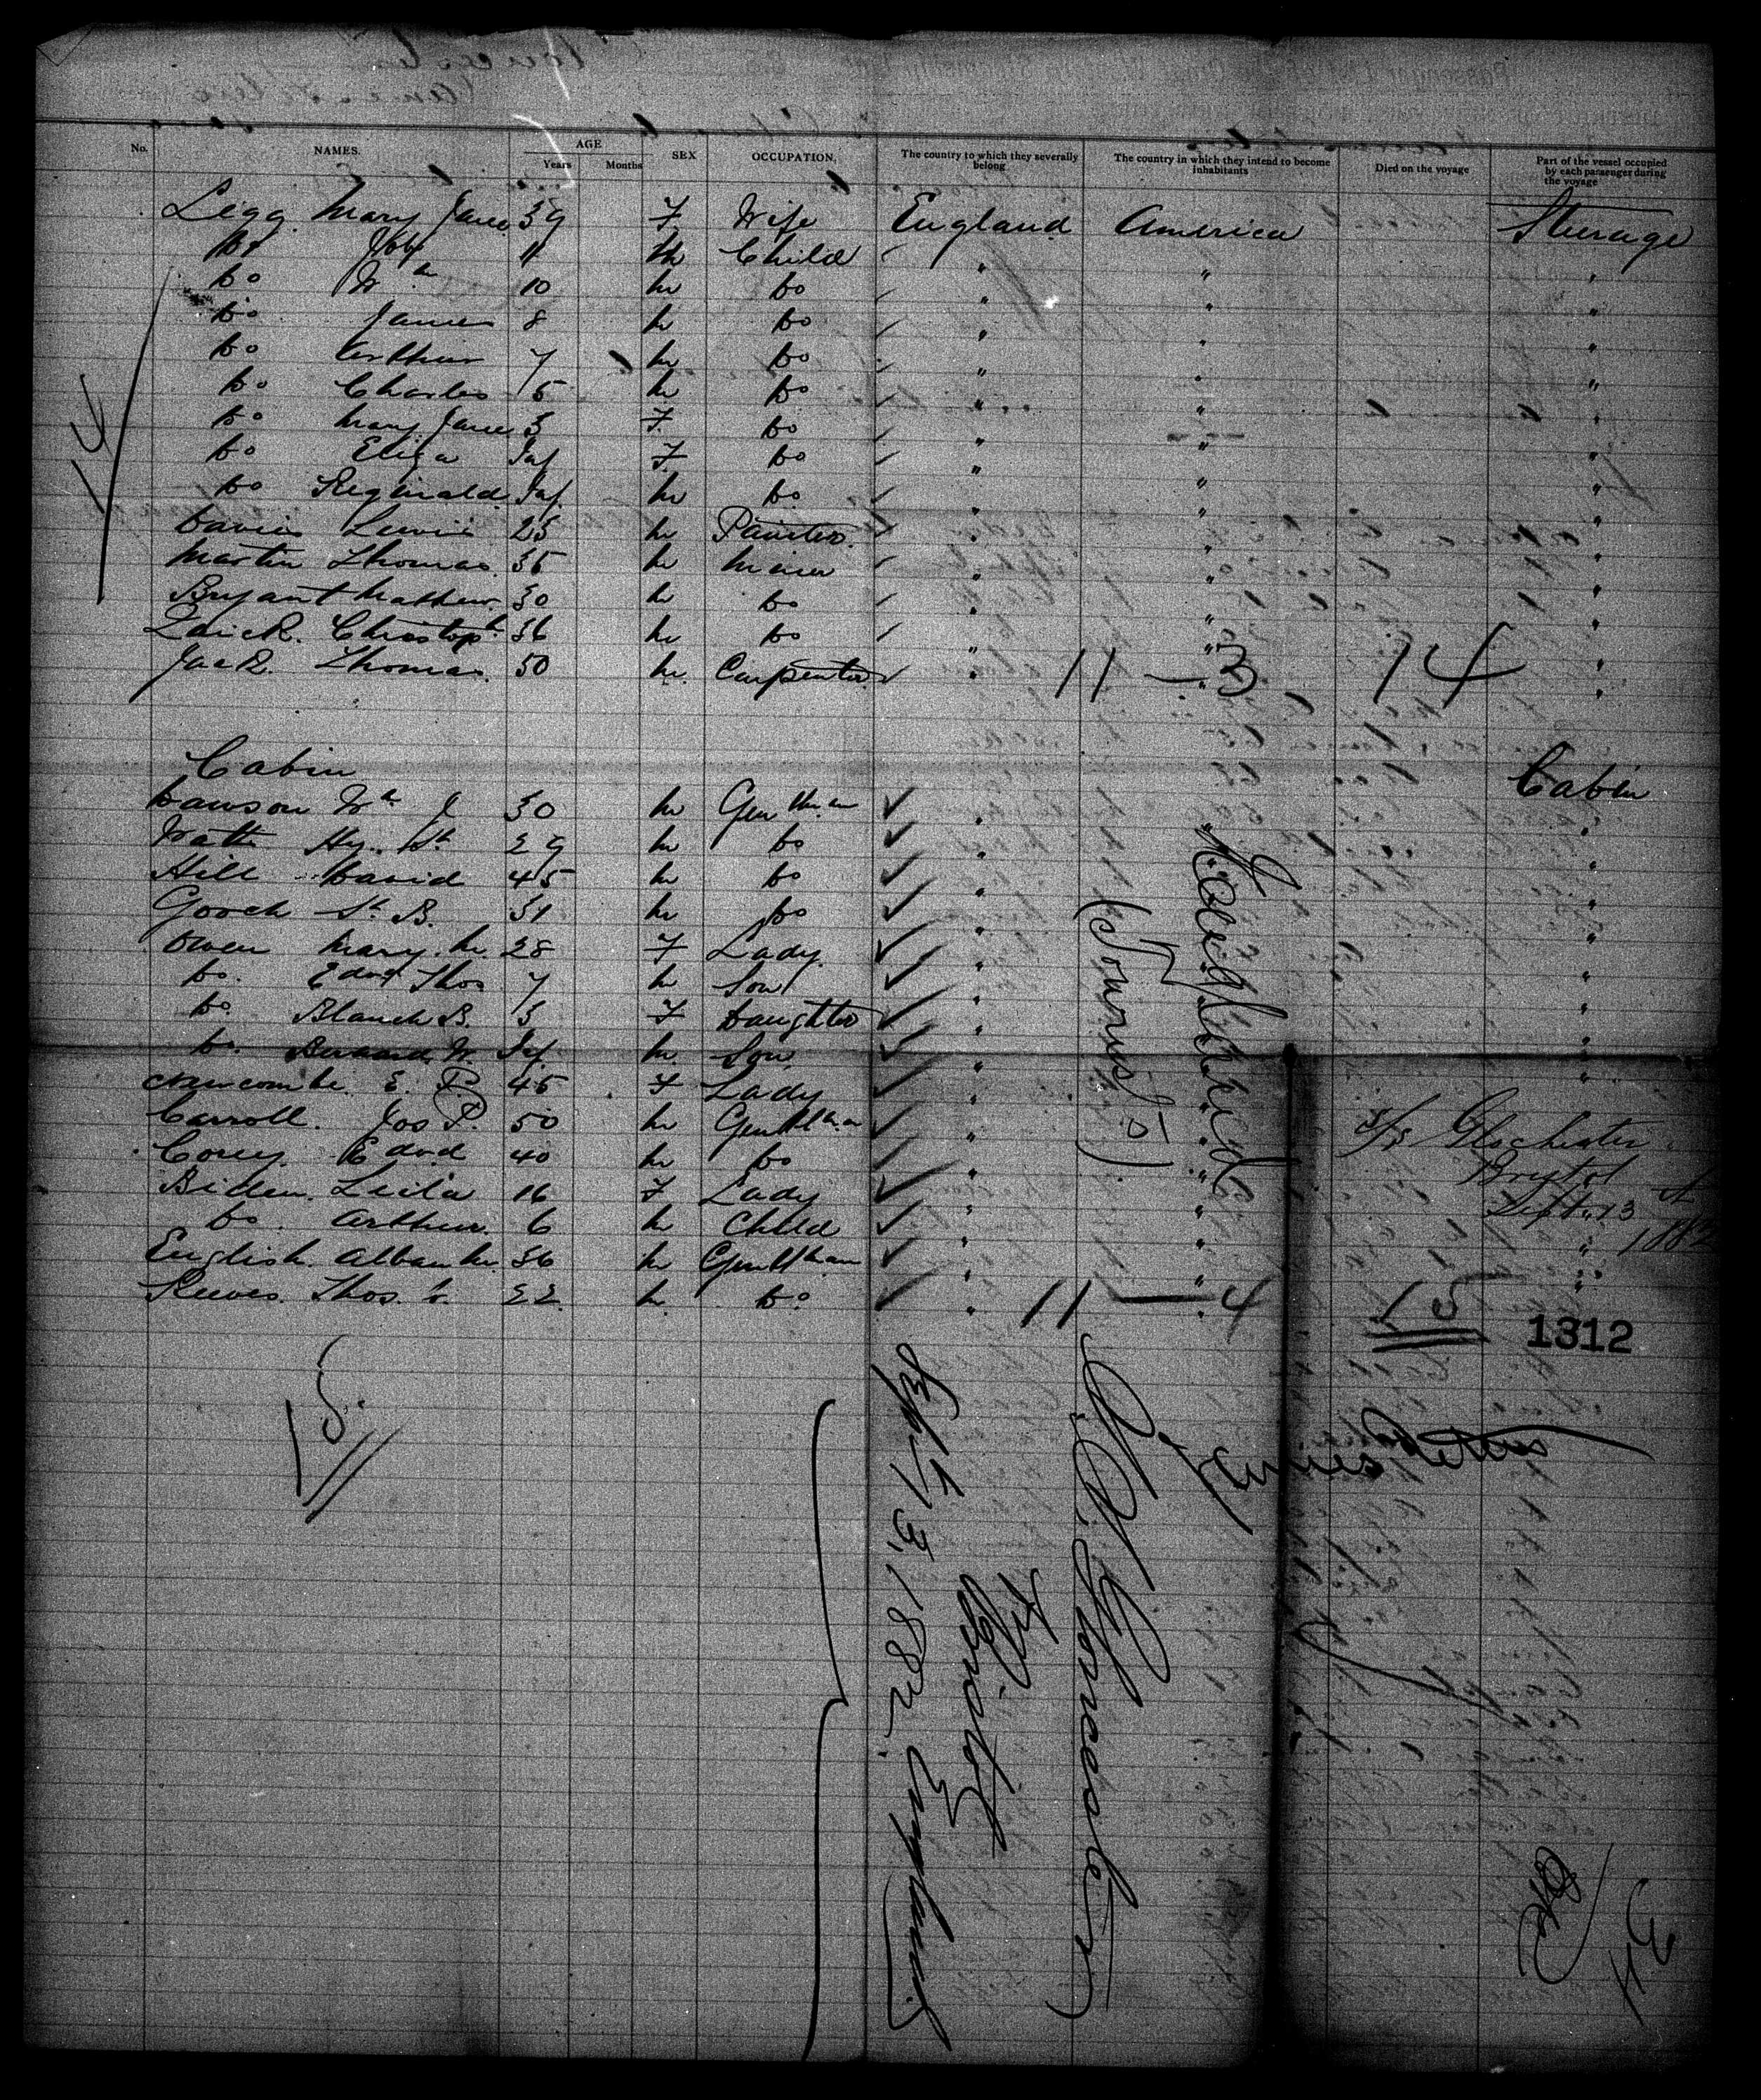 No. NAMES. AGE Years Months SEX OCCUPATION. The country to which they severally belong The country in which they intend to become inhabitants Died on the voyage Part of the vessel occupied by each passenger during the voyage
Legg Mary Jane 39 F Wife England America Steerage
Do 11 M Child " " "
Do Wm 10 M Do " " "
Do James 8 M Do " " "
Do Arthur 7 M Do " " "
Do Charles 5 M Do " " "
Do Mary Jane 3 F Do " " "
Do Eliza Inf F Do " " "
Do Reginald Inf M Do " " "
Davies Lewis 23 M Painter " " "
Martin Thomas 35 M Miner " " "
Bryant Mathew 30 M Do " " "
Christoph 36 M Do " " "
Jack Thomas 50 M Carpenter " 11 — 3 14 "
14
Cabin Cabin
Dawson Wm J 30 M Gentlman " "
Watts Hy. 29 M Do " "
Hill David 45 M Do " "
Gooch B. 31 M Do " "
Owen Mary M. 28 F Lady " "
Do. Edwd Thos 7 M Son " "
Do. Blanch B. 3 F Daughter " "
Do. Bernard W. Inf M Son " "
Newcombe E. P. 45 F Lady " "
Carroll. Jos P. 50 M Gentlman "
Corey Edwd 40 M Do "
Biden. Leila 16 F Lady "
Do. Arthur 6 M Child "
English. Alban M. 36 M Gentlman "
Reeves. Thos. 22 M Do " 11 — 4 15
(Tourists)
S/S Glochester
Bristol
Sept. 13
1882
1312
15
Bristol
Sept 13, 1882. England
34